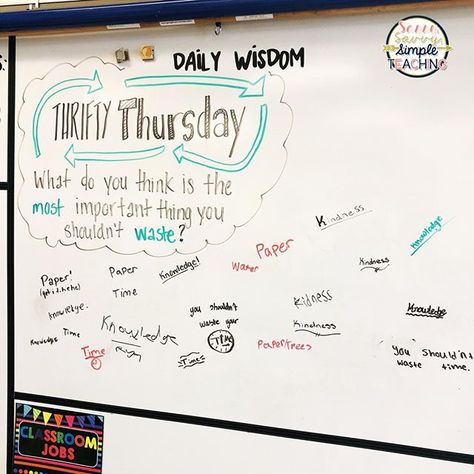 Sassy
Savvy
Simple
TEACHING
DAILY WISDOM
THRIFTY Thursday
What do you think is the
most important thing you
shouldn't waste?
Kindness
Knowledge
Paper
Water
Paper
Time
Knowledge!
Paper!
Kindness
Knowledge.
Knowledge
Time
you shouldn't
waste your
Time
Kidness
Kindness
Knowledge
Knowledge
Time
Time
Paper/trees
You Shouldn't
waste time.
CLASSROOM
JOBS